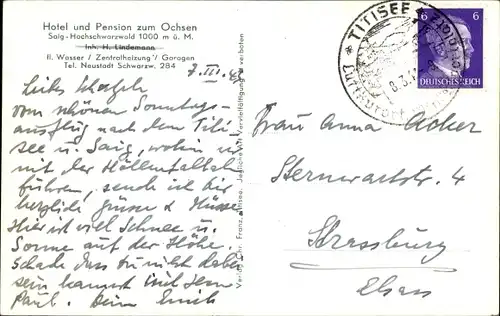 Hotel und Pension zum Ochsen
Saig-Hochschwarzwald 1000 m ü. M.
Inh. H. Lindemann
fl. Wasser / Zentralheizung / Garagen
Tel. Neustadt Schwarzw. 284
7. III. 43
Liebes
vom schönen Sonntags-
ausflug nach dem Titi-
see u. Saig, wohin wir
mit der Höllentalbahn
führen, sende ich dir
herzliche Grüsse & Küsse
Hier ist viel Schnee u.
Sonne auf der Höhe.
Schade dass du nicht dabei
sein kannst mit dem
Paul. Dein Emil
Jegliche Vervielfältigung verboten
TITISEE
6
6
DEUTSCHES REICH
Frau Anna Acker
Sternwartstr. 4
Strassburg
Elsass